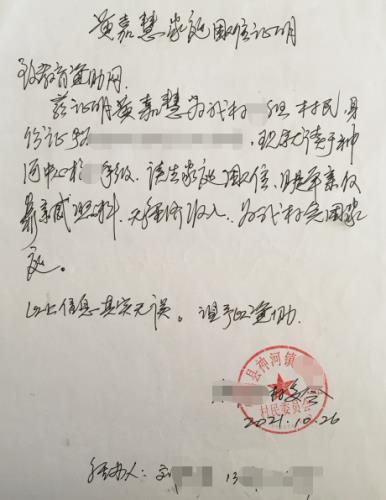 黄嘉慧家庭困难证明
致教育资助网
兹证明黄嘉慧为我村 组村民,身
份证号 ,现就读于神
河中心校 年级,该生家庭困难,
靠亲戚照料,无经济收入,为我村 困家
庭。
以上信息真实无误。望予以资助.
县神河镇
村民委员会
村委会
2021.10.26
经办人:刘 13